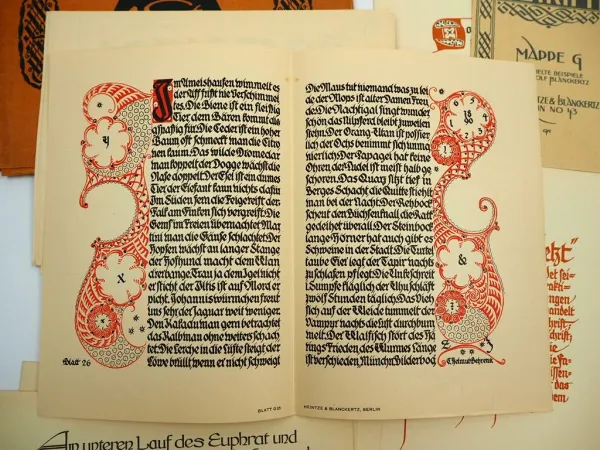 MAPPE G
HEINTZE & BLANCKERTZ
BERLIN NO 43
Im Ameishaufen wimmelt es
der Aff frißt nie Verschimmel
tes. Die Biene ist ein fleißig
Tier, dem Bären kommt dies
gspaßig für. Die Ceder ist ein hoher
Baum, oft schmeckt man die Citro
nen kaum. Das wilde Dromedar
man koppelt, der Dogge wächst die
Nase doppelt. Der Esel ist ein dumes
Tier, der Elefant kann nichts dafür.
Im Süden fern die Feige reift, der
Falk am Finken sich vergreift. Die
Gems im Freien übernachtet, Mar
tini man die Gänse schlachtet. Der
Hopfen wächst an langer Stange,
der Hofhund macht dem Wan
drer bange. Trau ja dem Igel nicht
er sticht, der Iltis ist auf Mord er
picht. Johanniswürmchen freut
uns sehr, der Jaguar weit weniger.
Den Kakadu man gern betrachtet,
das Kalb man ohne weiters schlach
tet. Die Lerche in die Lüfte steigt, der
Löwe brüllt, wenn er nicht schweigt
y
X
Blatt 26
BLATT G 26
Die Maus tut niemand was zu lei
de, der Mops ist alter Damen Freu
de. Die Nachtigal singt wunder
schön, das Nilpferd bleibt zuweilen
stehn. Der Orang-Utan ist possier
lich, der Ochs benimmt sich unma
nierlich. Der Papagei hat keine
Ohren, der Pudel ist meist halb ge
schoren. Das Quarz sitzt tief in
Berges Schacht, die Quitte stiehlt
man bei der Nacht. Der Rehbock
scheut den Büchsenknall, die Ratt
gedeihet überall. Der Steinbock
lange Hörner hat, auch gibt es
Schweine in der Stadt. Die Turtel
taube Eier legt, der Tapir nachts
zu schlafen pflegt. Die Unke schreit
i. Sumpfe kläglich, der Uhu schläft
zwölf Stunden täglich. Das Vieh
sich auf der Weide tummelt, der
Vampyr nachts die Luft durchbum
melt. Der Walfisch stört des Hä
rings Frieden, des Wurmes Länge
ist verschieden. Münchn. Bilderbog
&
Helmut Behrent
HEINTZE & BLANCKERTZ, BERLIN
Am unteren Lauf des Euphrat und